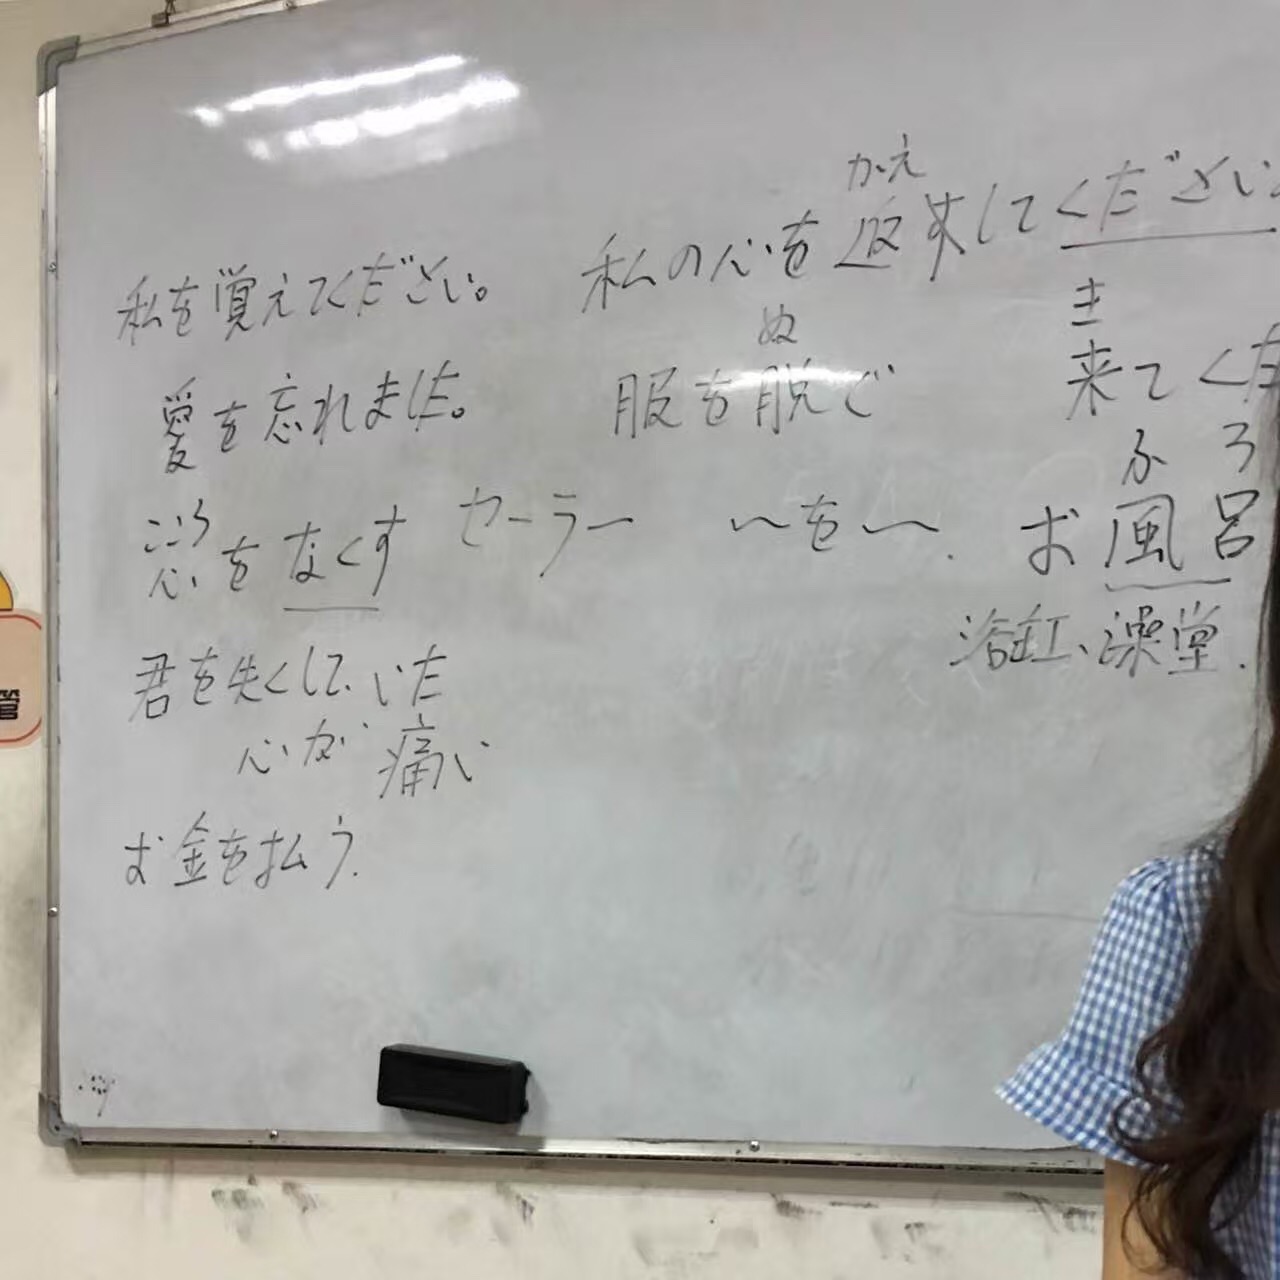 私を覚えてください。
愛を忘れました。
こころ
心をなくす
セーラー
君を失くして、いた
心が痛い
お金を払う.
かえ
私の心を返すしてください。
ぬ
服を脱ぐ
〜を〜.
き
来てくだ
ふろ
お風呂
浴缸、澡堂.
管